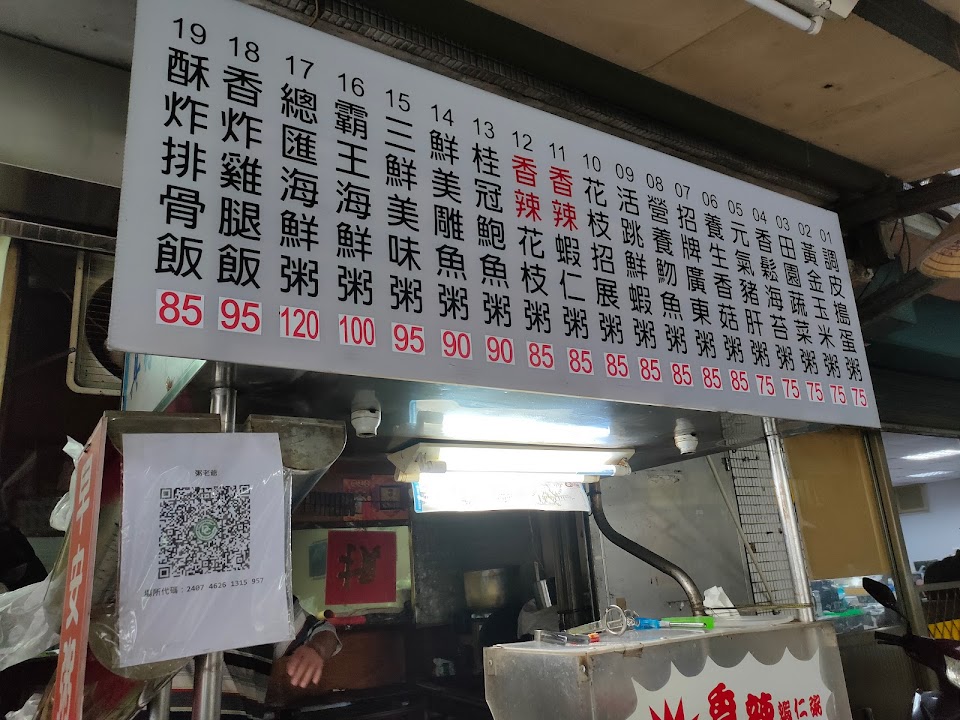 01 調皮搗蛋粥 75
02 黃金玉米粥 75
03 田園蔬菜粥 75
04 香鬆海苔粥 75
05 元氣豬肝粥 75
06 養生香菇粥 85
07 招牌廣東粥 85
08 營養魩魚粥 85
09 活跳鮮蝦粥 85
10 花枝招展粥 85
11 香辣蝦仁粥 85
12 香辣花枝粥 85
13 桂冠鮑魚粥 90
14 鮮美雕魚粥 90
15 三鮮美味粥 95
16 霸王海鮮粥 100
17 總匯海鮮粥 120
18 香炸雞腿飯 95
19 酥炸排骨飯 85
粥老爺
場所代碼：2407 4626 1315 957
早安
香辣蝦仁粥